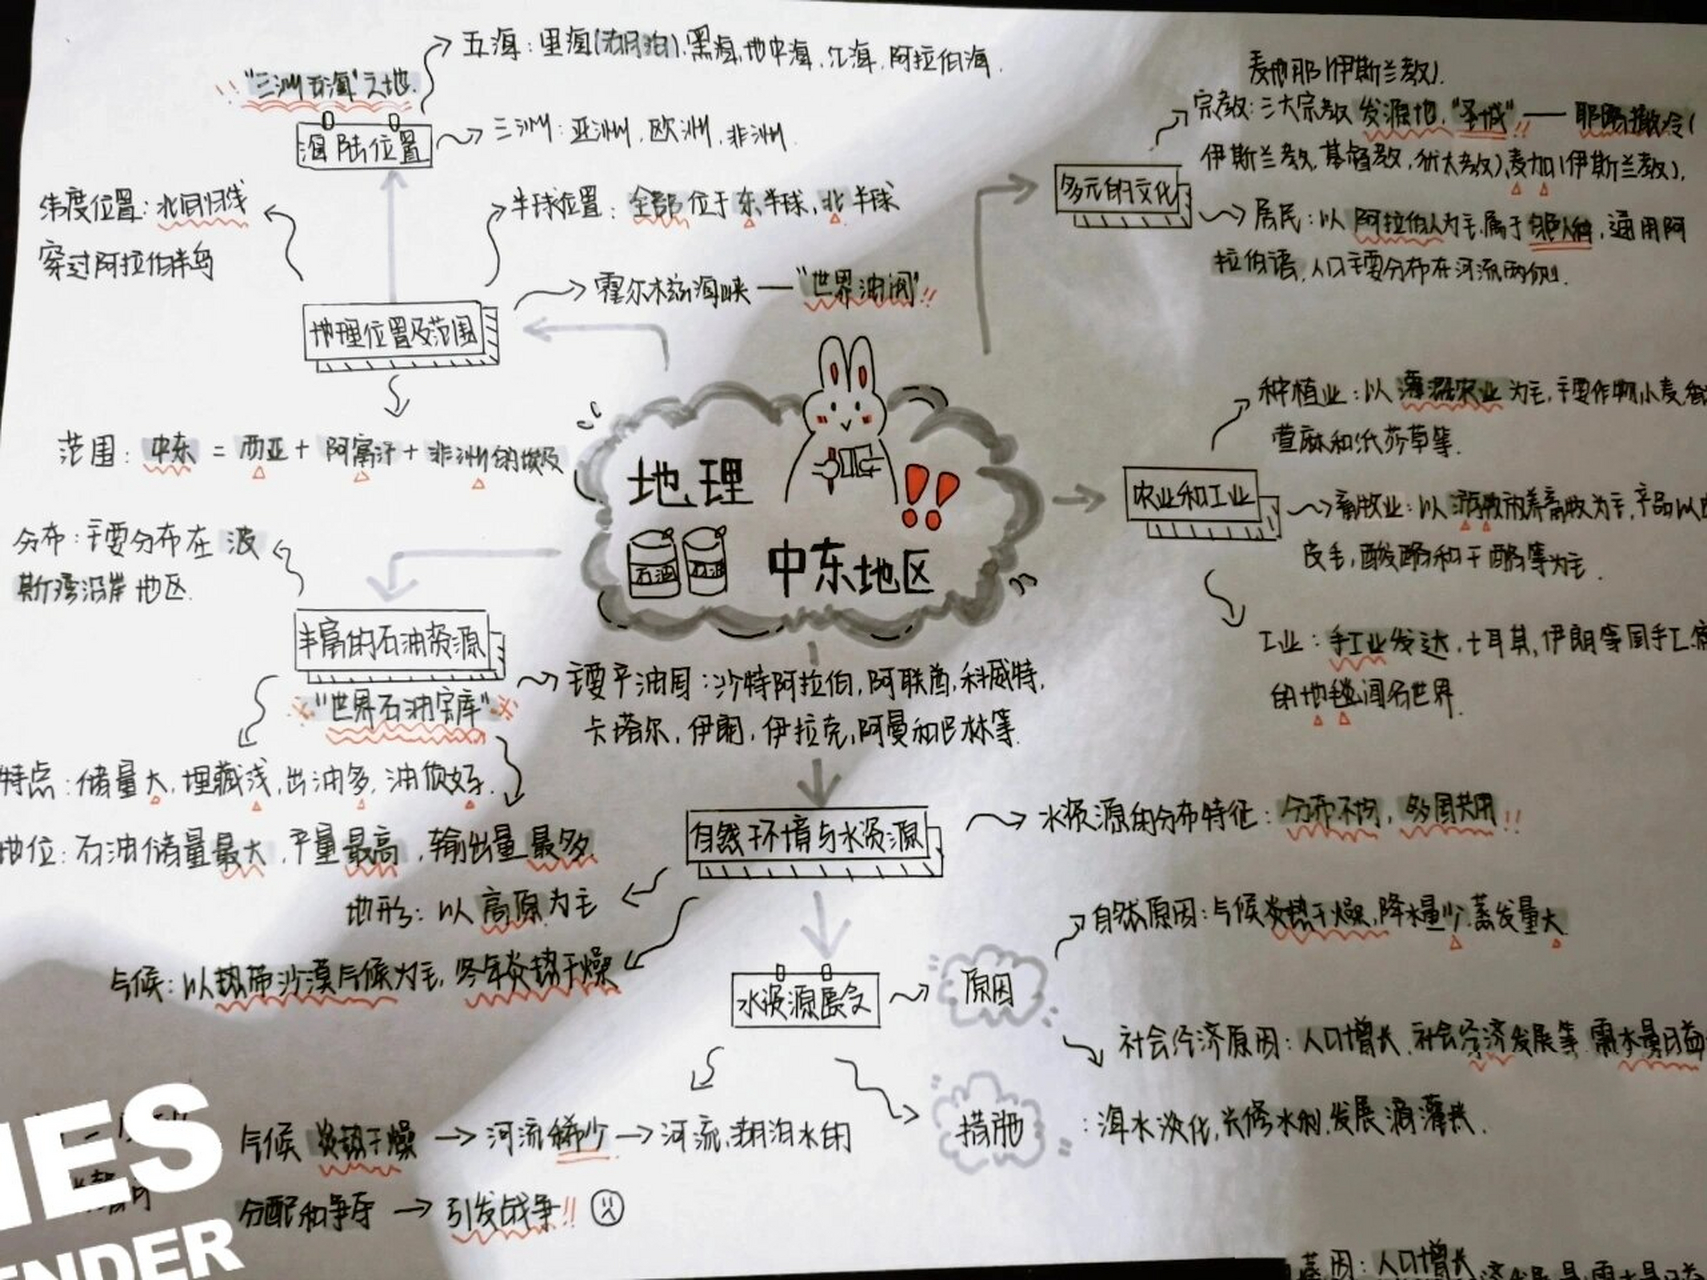 "三洲五海"之地
五海：里海(湖泊)、黑海、地中海、红海、阿拉伯海.
海陆位置
三洲：亚洲、欧洲、非洲.
纬度位置：北回归线
穿过阿拉伯半岛
半球位置：全部位于东半球、北半球
霍尔木兹海峡—"世界油阀"!!
地理位置及范围
范围：中东 = 西亚 + 阿富汗 + 非洲的埃及
分布：主要分布在波
斯湾沿岸地区.
丰富的石油资源
"世界石油宝库"
主要产油国：沙特阿拉伯,阿联酋,科威特,
卡塔尔,伊朗,伊拉克,阿曼和巴林等.
特点：储量大,埋藏浅,出油多,油质好.
地位：石油储量最大,产量最高,输出量最多.
地理
石油 石油
中东地区
!!
麦地那(伊斯兰教).
宗教：三大宗教发源地,"圣城"!!——耶路撒冷(
伊斯兰教,基督教,犹太教)、麦加(伊斯兰教),
多元的文化
居民：以阿拉伯人为主,属于白色人种,通用阿
拉伯语,人口主要分布在河流两侧.
种植业：以灌溉农业为主,主要作物小麦,
萱麻和纸莎草等.
农业和工业
畜牧业：以游牧放养畜牧为主,产品以
皮毛,酸酪和干酪等为主.
工业：手工业发达,土耳其,伊朗等国手工
的地毯闻名世界.
自然环境与水资源
水资源的分布特征：分布不均,多国共用!!
地形：以高原为主
气候：以热带沙漠气候为主,终年炎热干燥
水资源匮乏
原因
自然原因：气候炎热干燥,降水量少,蒸发量大.
社会经济原因：人口增长,社会经济发展等,需水量日益
措施
：海水淡化,兴修水利,发展滴灌技.
气候炎热干燥 → 河流稀少 → 河流,湖泊水的
分配和争夺 → 引发战争!!
IES
ENDER
原因：人口增长